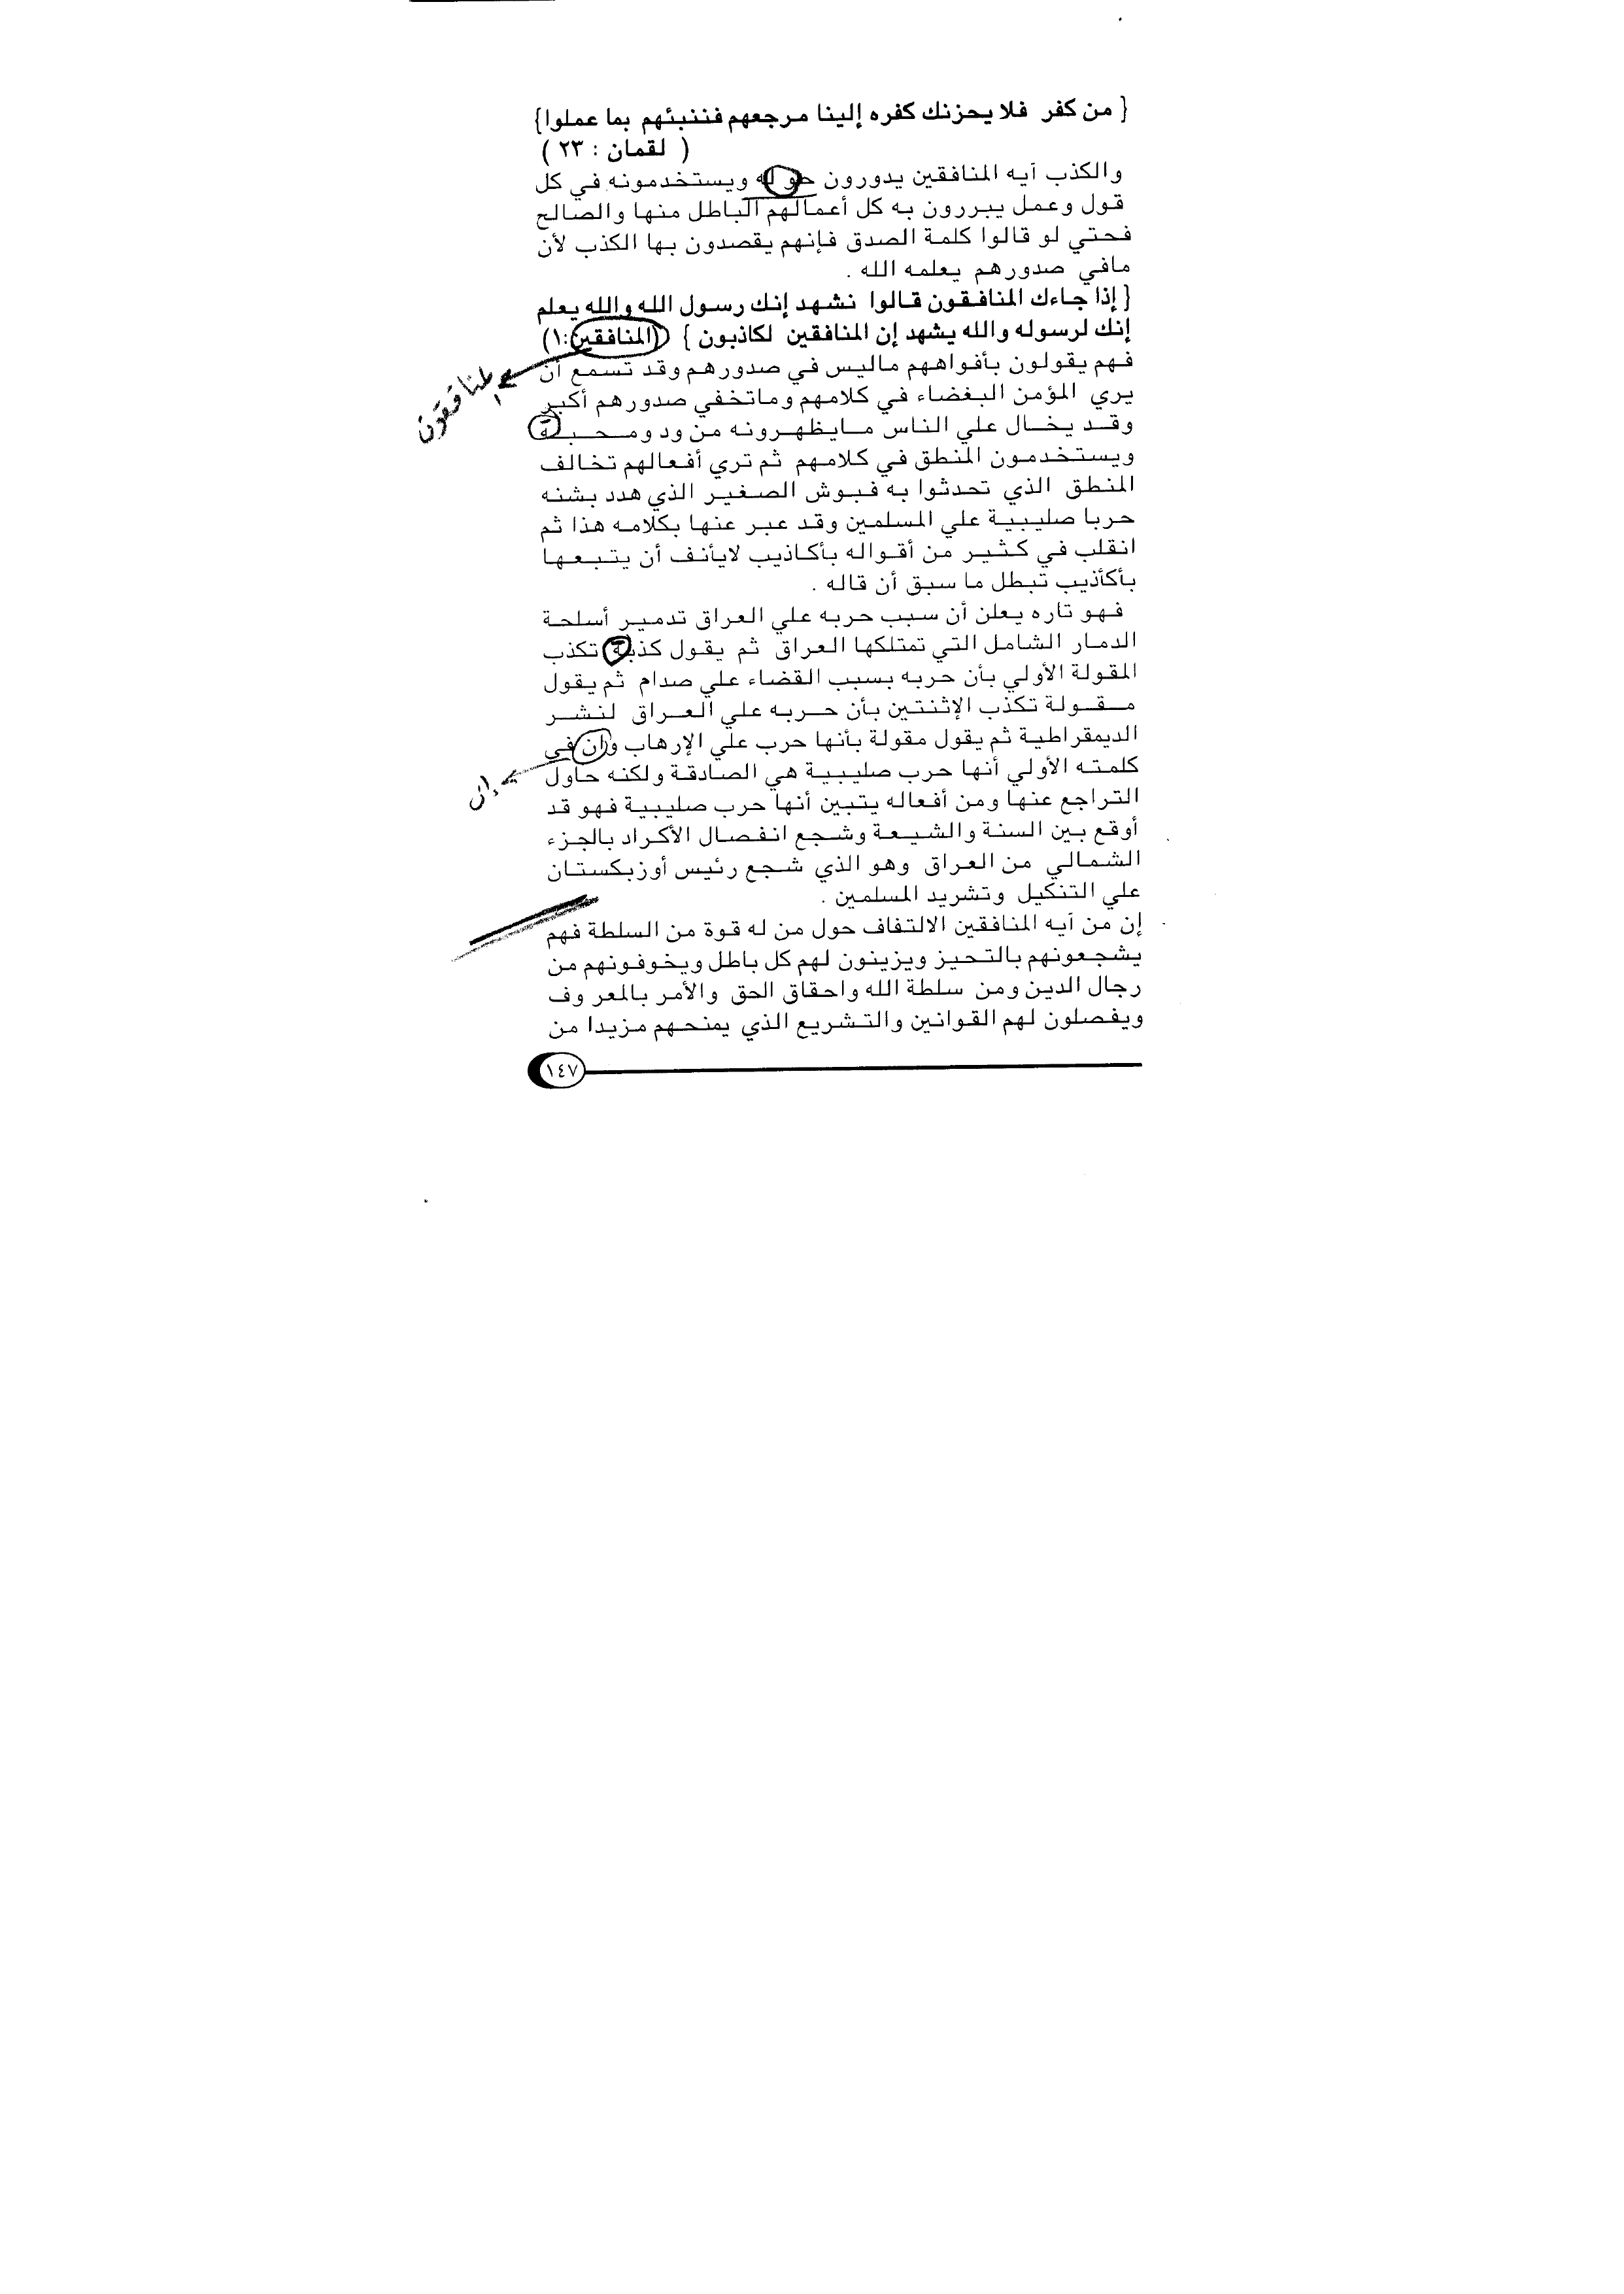 { من كفر فلا يحزنك كفره إلينا مرجعهم فننبئهم بما عملوا}
( لقمان : ٢٣ )
والكذب آيه المنافقين يدورون حو له ويستخدمونه في كل
قول وعمل يبررون به كل أعمالهم الباطل منها والصالح
فحتي لو قالوا كلمة الصدق فإنهم يقصدون بها الكذب لأن
مافي صدورهم يعلمه الله .
{ إذا جاءك المنافقون قالوا نشهد إنك رسول الله والله يعلم
إنك لرسوله والله يشهد إن المنافقين لكاذبون } (المنافقين:١)
فهم يقولون بأفواههم ماليس في صدورهم وقد تسمع أن
المنافقون
يري المؤمن البغضاء في كلامهم وماتخفي صدورهم أكبر
وقد يخال علي الناس مايظهرونه من ود ومحبة
ويستخدمون المنطق في كلامهم ثم تري أفعالهم تخالف
المنطق الذي تحدثوا به فبوش الصغير الذي هدد بشنه
حربا صليبية علي المسلمين وقد عبر عنها بكلامه هذا ثم
انقلب في كثير من أقواله بأكاذيب لايأنف أن يتبعها
بأكأذيب تبطل ما سبق أن قاله .
فهو تاره يعلن أن سبب حربه علي العراق تدمير أسلحة
الدمار الشامل التي تمتلكها العراق ثم يقول كذبة تكذب
المقولة الأولي بأن حربه بسبب القضاء علي صدام ثم يقول
مقولة تكذب الإثنتين بأن حربه علي العراق لنشر
الديمقراطية ثم يقول مقولة بأنها حرب علي الإرهاب وان في
إن
كلمته الأولي أنها حرب صليبية هي الصادقة ولكنه حاول
التراجع عنها ومن أفعاله يتبين أنها حرب صليبية فهو قد
أوقع بين السنة والشيعة وشجع انفصال الأكراد بالجزء
الشمالي من العراق وهو الذي شجع رئيس أوزبكستان
علي التنكيل وتشريد المسلمين .
إن من آيه المنافقين الالتفاف حول من له قوة من السلطة فهم
يشجعونهم بالتحيز ويزينون لهم كل باطل ويخوفونهم من
رجال الدين ومن سلطة الله واحقاق الحق والأمر بالمعروف
ويفصلون لهم القوانين والتشريع الذي يمنحهم مزيدا من
١٤٧